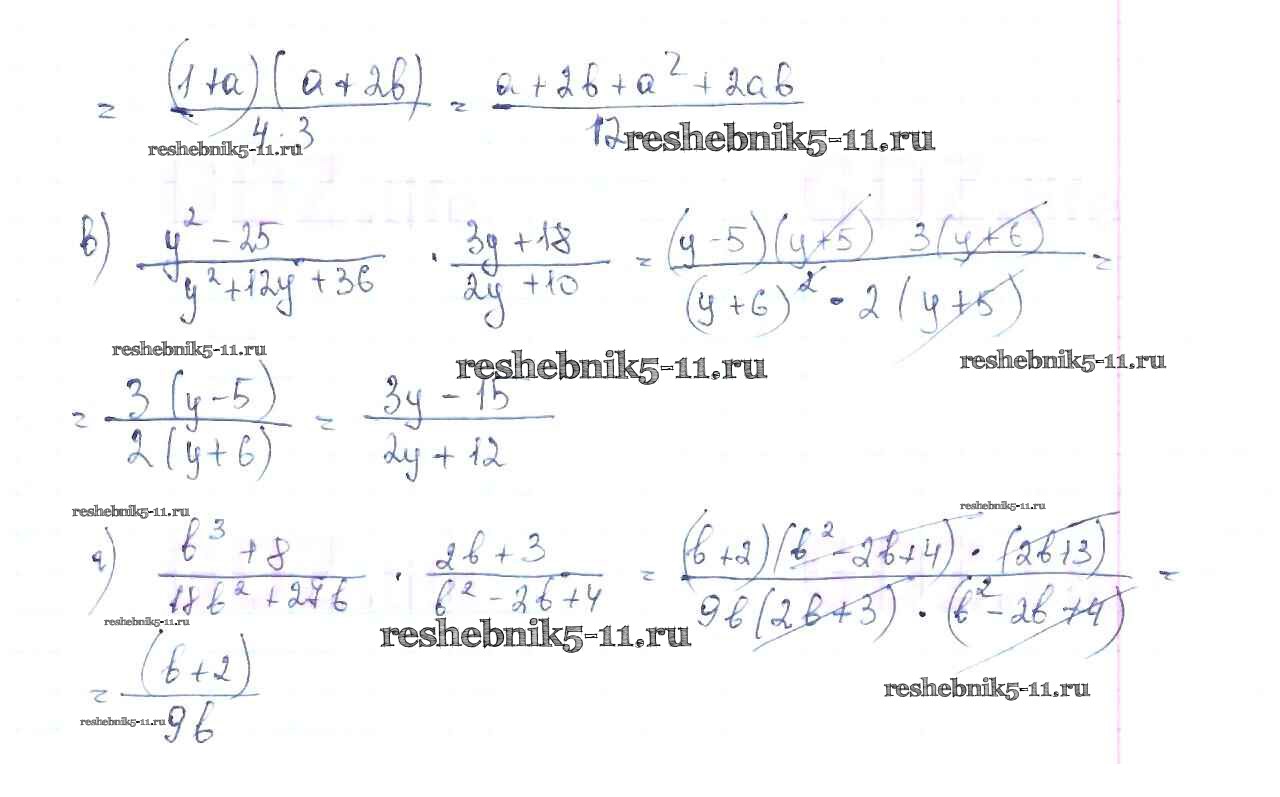 = (1+a)(a+2b) / 4·3 = a+2b+a²+2ab / 12
reshebnik5-11.ru reshebnik5-11.ru
в) y²-25 / y²+12y+36 · 3y+18 / 2y+10 = (y-5)(y+5) 3(y+6) / (y+6)²·2(y+5) =
reshebnik5-11.ru reshebnik5-11.ru reshebnik5-11.ru
= 3(y-5) / 2(y+6) = 3y-15 / 2y+12
reshebnik5-11.ru reshebnik5-11.ru
г) b³+8 / 18b²+27b · 2b+3 / b²-2b+4 = (b+2)(b²-2b+4)·(2b+3) / 9b(2b+3)·(b²-2b+4) =
reshebnik5-11.ru reshebnik5-11.ru
= (b+2) / 9b
reshebnik5-11.ru reshebnik5-11.ru